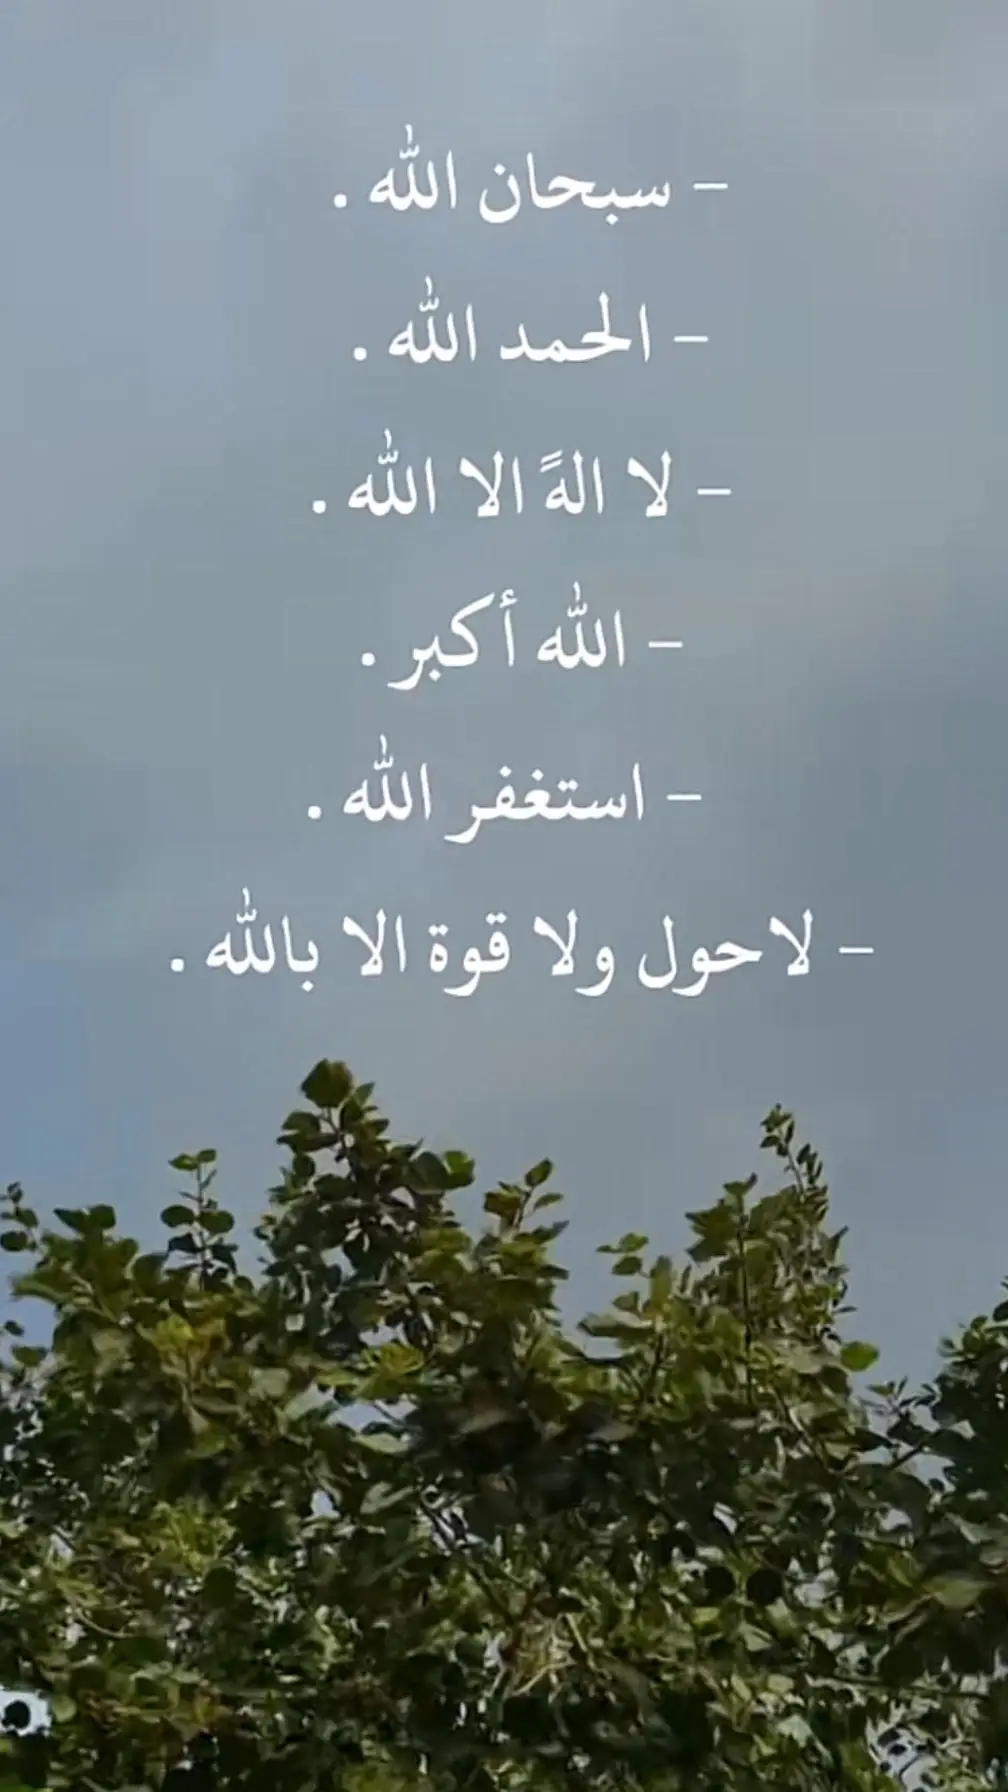 - سبحان الله .
- الحمد الله .
- لا الهً الا الله .
- الله أكبر .
- استغفر الله .
- لاحول ولا قوة الا بالله .